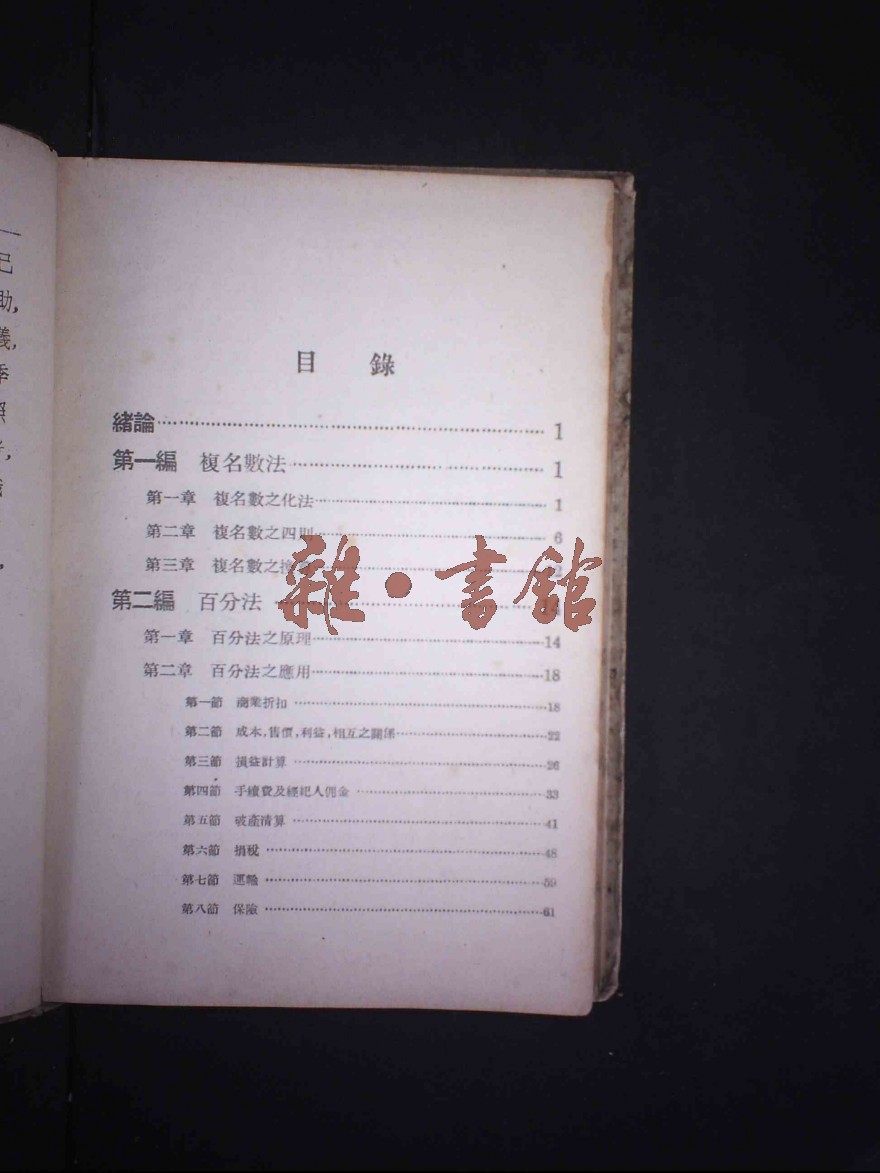 目錄
緒論 1
第一編 複名數法 1
第一章 複名數之化法 1
第二章 複名數之四則 6
第三章 複名數之換
第二編 百分法 14
第一章 百分法之原理 14
第二章 百分法之應用 18
第一節 商業折扣 18
第二節 成本,售價,利益,相互之關係 22
第三節 損益計算 26
第四節 手續費及經紀人佣金 33
第五節 破產清算 41
第六節 捐稅 48
第七節 運輸 59
第八節 保險 61
雜·書館